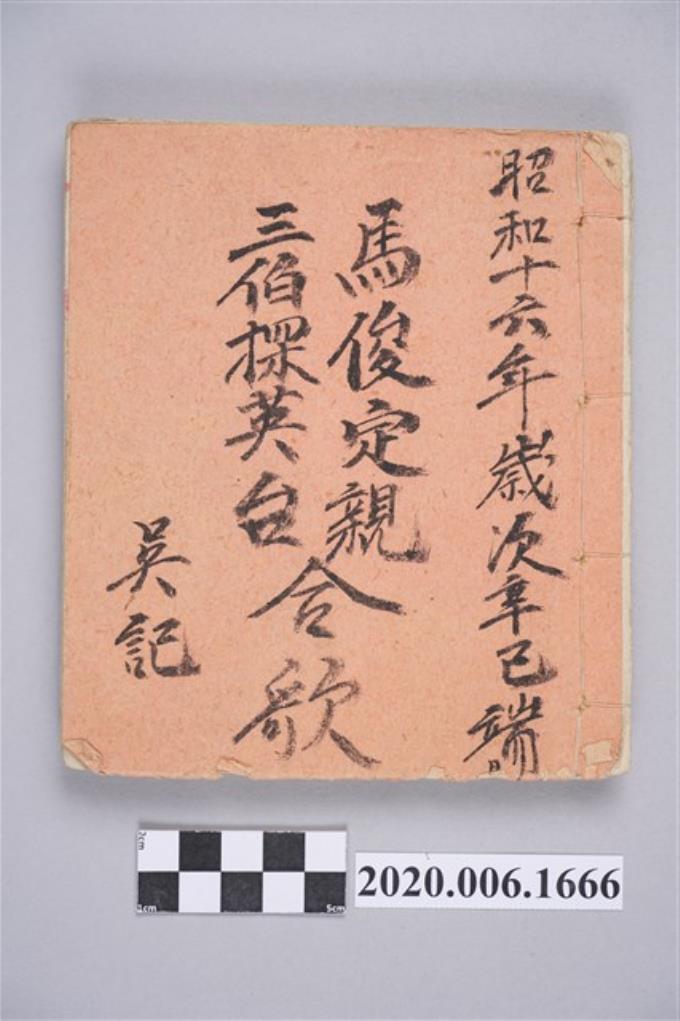 昭和十六年歲次辛巳端月
馬俊定親
三伯探英台
合歌
吳記
2cm
1cm
5cm
2020.006.1666